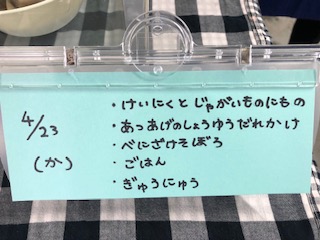 4/23
(か)
・けいにくと じゃがいものにもの
・あつあげのしょうゆうだれかけ
・べにざけそぼろ
・ごはん
・ぎゅうにゅう